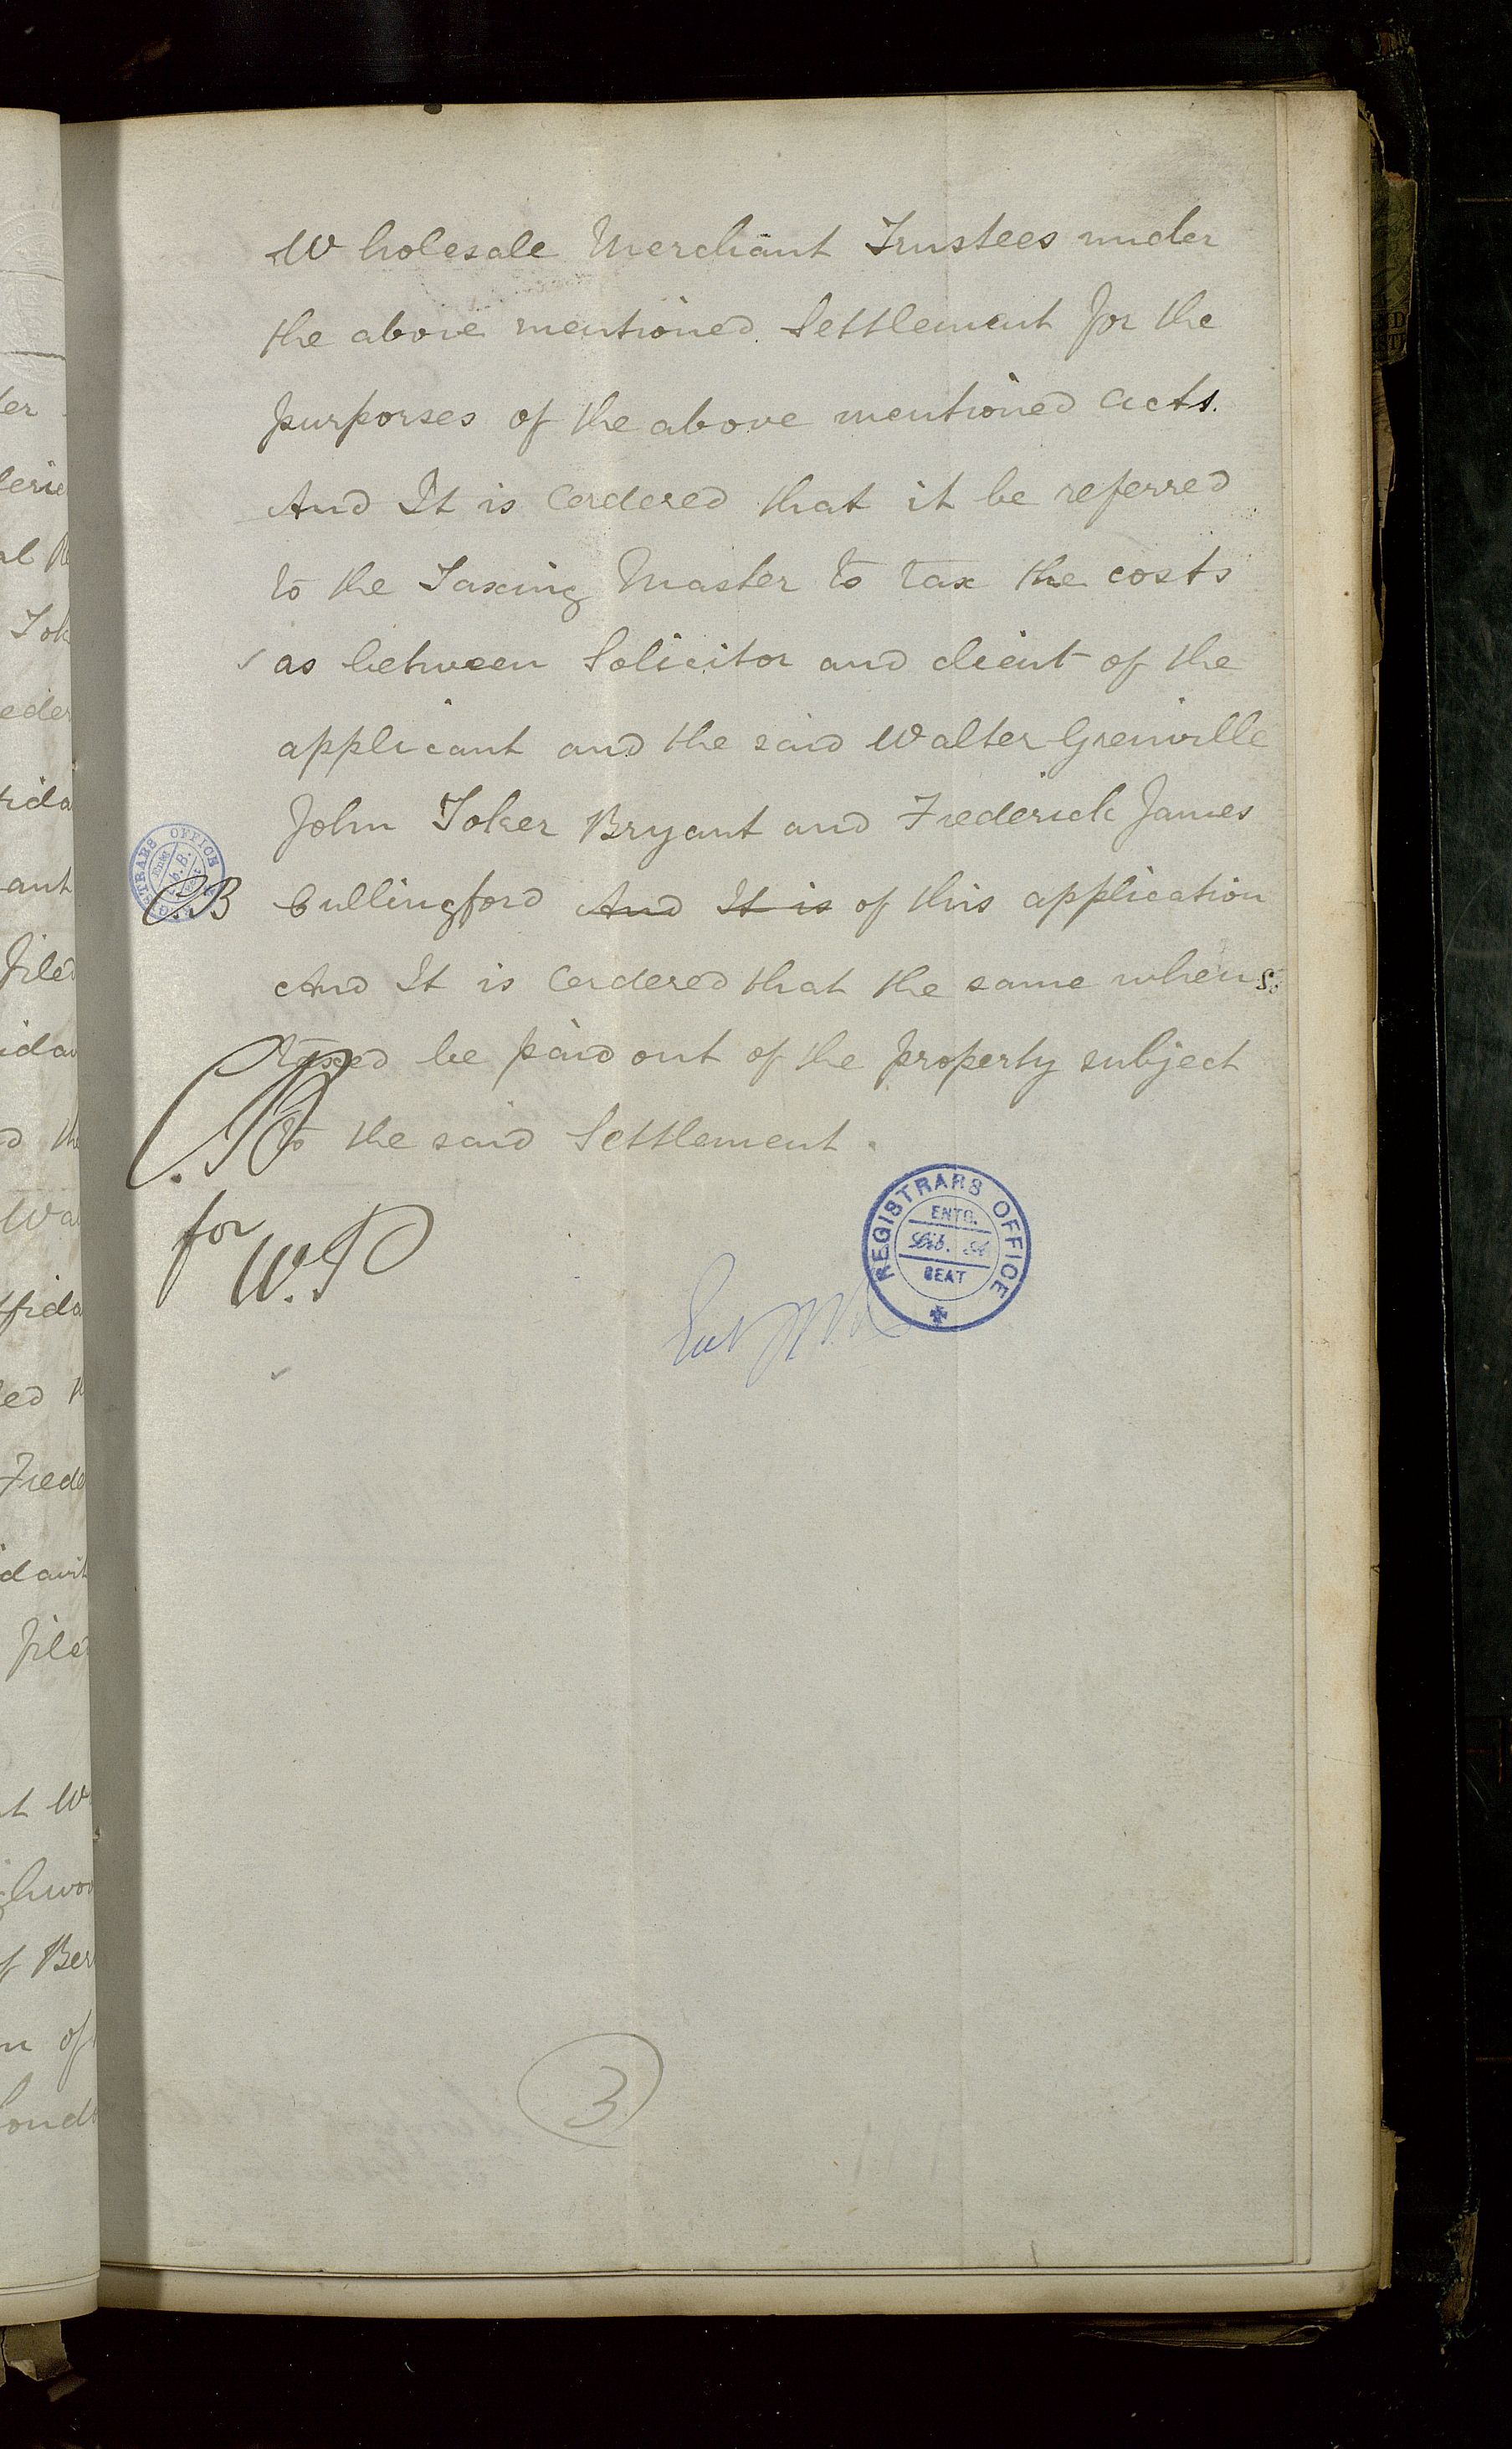 Wholesale Merchant Trustees under
the above mentioned Settlement for the
purporses of the above mentioned acts.
And It is Ordered that it be referred
to the Taxing Master to tax the costs
as between Solicitor and client of the
applicant and the said Walter Grenville
John Toker Bryant and Frederick James
Cullingford And It is of this application
And It is Ordered that the same when
taxed be paid out of the property subject
to the said Settlement.
C.B
for
W.P
REGISTRARS OFFICE
ENTG.
Lib. A
SEAT
3